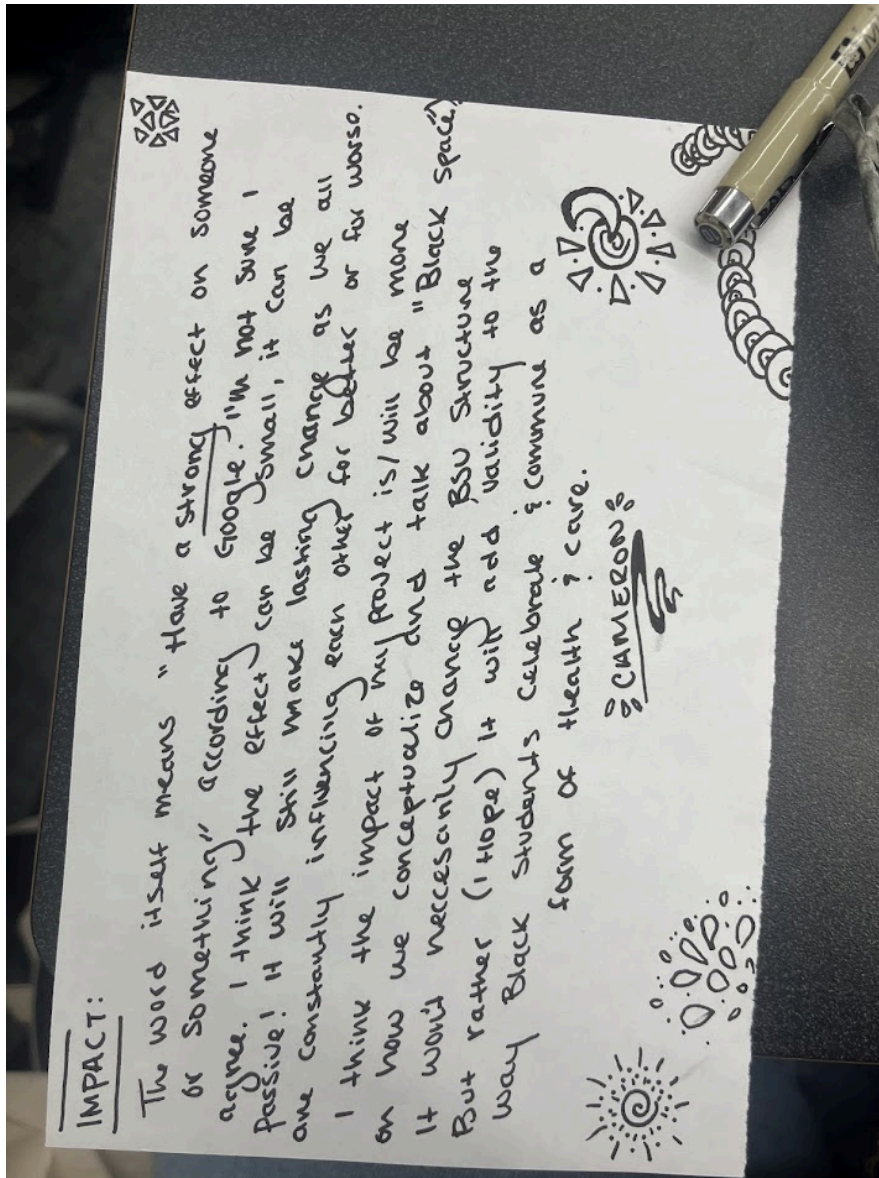 IMPACT:
The word itself means "Have a strong effect on someone
or something" according to Google. I'm not sure I
agree. I think the effect can be small, it can be
passive! It will still make lasting change as we all
are constantly influencing each other for better or for worse.
I think the impact of my project is/will be more
on how we conceptualize and talk about "Black space"
It won't neccesarily change the BSU structure
But rather (I Hope) It will add validity to the
way Black students celebrate & commune as a
form of Health & care.
CAMERON